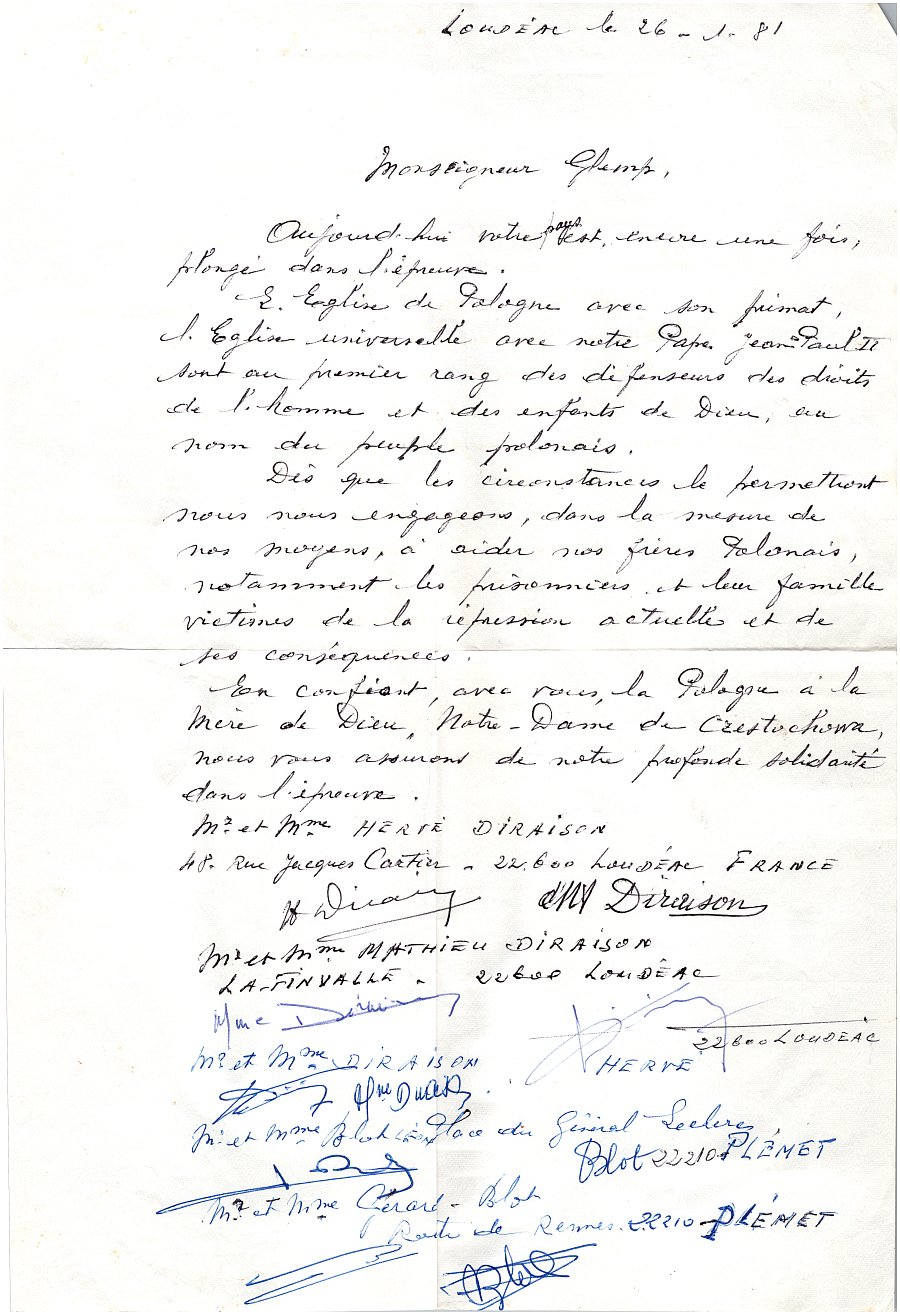 LOUDÉAC le 26 - 1. 81
Monseigneur Glemp,
Aujourd'hui votre pays est, encore une fois,
plongé dans l'épreuve.
L'Eglise de Pologne avec son primat,
l'Eglise universelle avec notre Pape Jean-Paul II
sont au premier rang des défenseurs des droits
de l'homme et des enfants de Dieu, au
nom du peuple polonais.
Dès que les circonstances le permettront
nous nous engageons, dans la mesure de
nos moyens, à aider nos frères Polonais,
notamment les prisonniers et leur famille
victimes de la répression actuelle et de
ses conséquences.
En confiant, avec vous, la Pologne à la
Mère de Dieu, Notre-Dame de Czestochowa,
nous vous assurons de notre profonde solidarité
dans l'épreuve.
Mr et Mme HERVÉ DIRAISON
48. Rue Jacques Cartier - 22.600 LOUDÉAC FRANCE
Diraison
Mr et Mme MATHIEU DIRAISON
LA-FINVALLE - 22600 LOUDÉAC
Mme Diraison
22600 LOUDÉAC
Mr et Mme DIRAISON HERVÉ
Mme
Mr et Mme Blot Place du Général Leclerc
Blot 22210 PLÉMET
Mr et Mme Gérard - Blot
Route de Rennes 22210 - PLÉMET
Blot